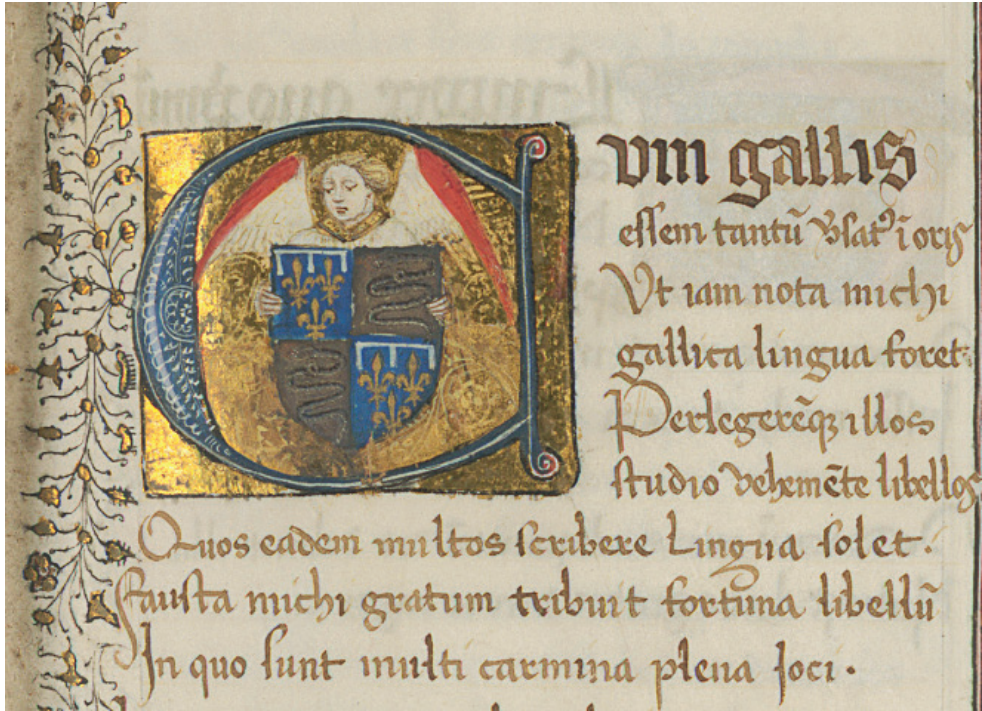 Cum gallis
essem tantū v̓satꝰ ī oris
Ut iam nota michi
gallica lingua foret:
Perlegerēqꝫ illos
studio vehemēte libellos
Quos eadem multos scribere Lingua solet.
Fausta michi gratum tribuit fortuna libellū
In quo sunt multi carmina plena Joci.